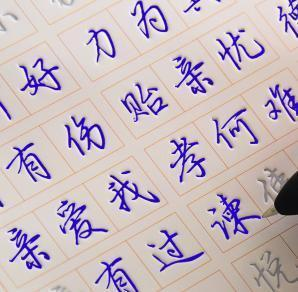 好力为
有伤贻亲忧德
亲爱我孝何难
有过谏使
悦